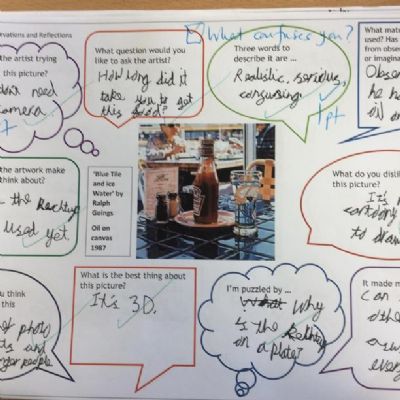 rvations and Reflections
the artist trying
this picture?
need
camera
What question would you
like to ask the artist?
How long did it
take you to get
this good?
What confuses you?
Three words to
describe it are ...
Realistic, serious,
consusing
1pt
What mate
used? Has
from obser
or imagina
Obser
he ha
oil on
the artwork make
think about?
the
Used yet
'Blue Tile
and Ice
Water' by
Ralph
Goings
Oil on
canvas
1987
What do you dislik
this picture?
It's
cartoony
to draw
u think
this
of photo
and
people
What is the best thing about
this picture?
It's 3D.
I'm puzzled by ...
Why
is the
on a plate?
It made m
Can
othe
every